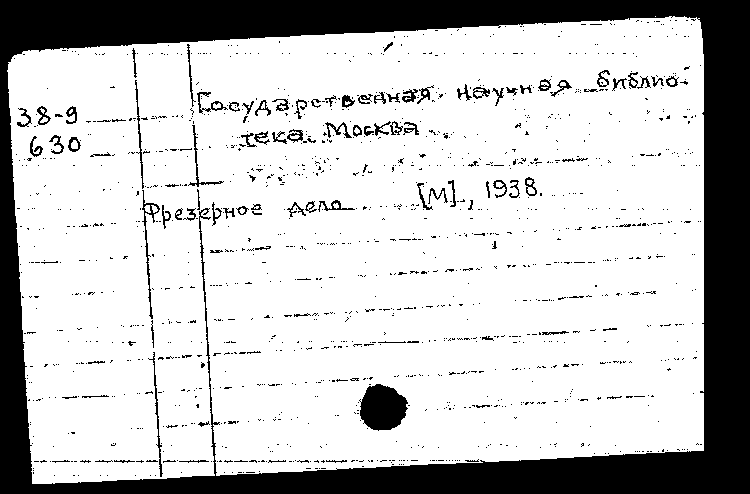 38-9
630
Государственная научная библио-
тека. Москва
Фрезерное дело [М]., 1938.